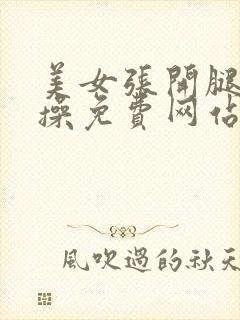 美女张開腿
操免費网佔
風吹過的秋天